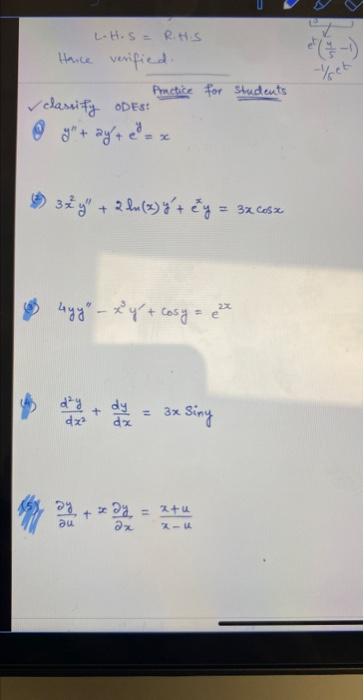 L.H.S = R.H.S
Hence verified.
eᵗ(4/5 - 1)
-1/5 eᵗ
Practice for Students
✓ classify ODEs:
(1) y'' + 2y' + e^y = x
(2) 3x²y'' + 2 ln(x) y' + eˣy = 3x cosx
(3) 4yy'' - x³y' + cosy = e^2x
(4) d²y/dx² + dy/dx = 3x Siny
(5) ∂y/∂u + x ∂y/∂x = x+u/x-u